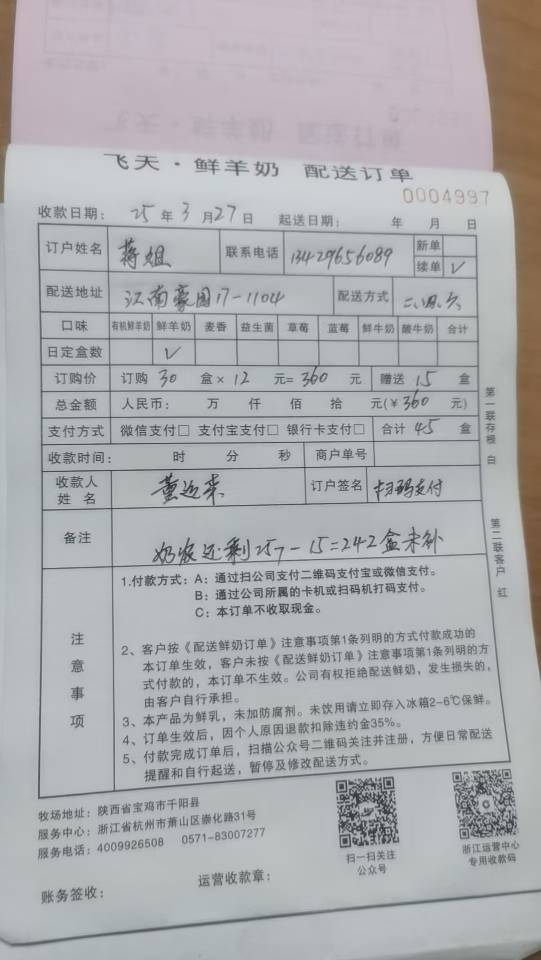 飞天·鲜羊奶 配送订单
0004997
收款日期: 25年3月27日 起送日期: 年 月 日
订户姓名 蒋姐 联系电话 13429656089 新单
续单 √
配送地址 江南豪园17-1104 配送方式 二、四、六
口味 有机鲜羊奶 鲜羊奶 麦香 益生菌 草莓 蓝莓 鲜牛奶 酸牛奶 合计
日定盒数 √
订购价 订购 30 盒×12 元=360 元 赠送 15 盒
总金额 人民币: 万 仟 佰 拾 元(¥360 元)
支付方式 微信支付□ 支付宝支付□ 银行卡支付□ 合计 45 盒
收款时间: 时 分 秒 商户单号
收款人姓名 董 订户签名 扫码支付
备注 奶农还剩257-15=242盒未补
注意事项
1.付款方式: A: 通过扫公司支付二维码支付宝或微信支付。
B: 通过公司所属的卡机或扫码机打码支付。
C: 本订单不收取现金。
2、客户按《配送鲜奶订单》注意事项第1条列明的方式付款成功的
本订单生效,客户未按《配送鲜奶订单》注意事项第1条列明的方
式付款的,本订单不生效。公司有权拒绝配送鲜奶,发生损失的,
由客户自行承担。
3、本产品为鲜乳,未加防腐剂。未饮用请立即存入冰箱2-6℃保鲜。
4、订单生效后,因个人原因退款扣除违约金35%。
5、付款完成订单后,扫描公众号二维码关注并注册,方便日常配送
提醒和自行起送,暂停及修改配送方式。
第一联存根 白
第二联客户 红
牧场地址: 陕西省宝鸡市千阳县
服务中心: 浙江省杭州市萧山区崇化路31号
服务电话: 4009926508 0571-83007277
扫一扫关注
公众号
浙江运营中心
专用收款码
账务签收: 运营收款章: